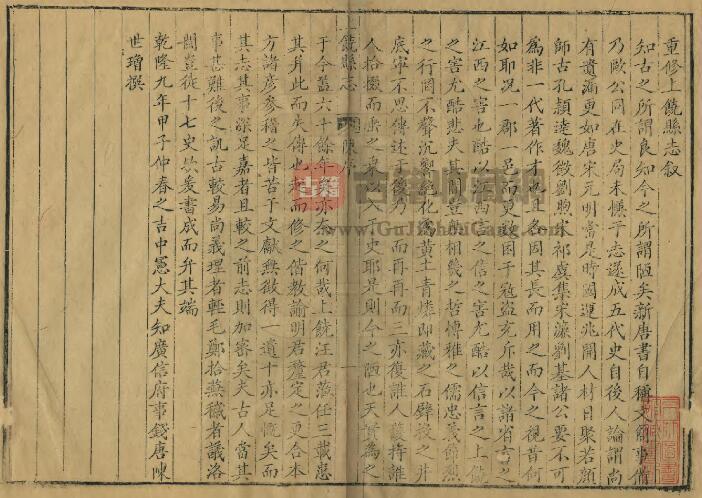 重修上饒縣志叙
知古之所謂良知今之所謂陋矣新唐書自稱文簡事備
乃歐公同在史局未慊于志遂成五代史自後人論謂尚
有遺漏更如唐宋元明當是時國運兆開人材日聚若顏
師古孔穎達魏徵劉煦宋祁虞集宋濂劉基諸公要不可
為非一代著作才也且各因其長而用之而今之視昔何
如耶况一郡一邑而更故因于寇盜亥斤哉以諸省言之
江西之害也酷以江西言之信之害尤酷以信言之上饒
之害尤酷悲夫其間豈無相幾之哲博雅之儒忠義節烈
之行罔不聲沉響絶化為黄土青燐即藏之石壁投之井
底寜不思傳述于後乃而再而三亦復誰人墓持誰
人拾懷而垂之東以入于史耶是則今之陋也天實為之
上饒縣志 陳序 一
于今蓋六十餘年矣亦奈之何哉上饒汪君蒞任三載患
其再此而失傳也起而修之偕教諭明君釐定之更合本
方諸彦參稽之皆苦于文獻無徵得一遺十亦足慨矣而
其志其事深足嘉者且較之前志則加審矣夫古人當其
事甚難後之訊古較易尚義理者輕毛鄭拾蕪穢者議洛
閩豈徒十七史然爰書成而弁其端
乾隆九年甲子仲春之吉中憲大夫知廣信府事錢唐陳
世增撰
古籍收藏網
www.GuJiShouCang.com